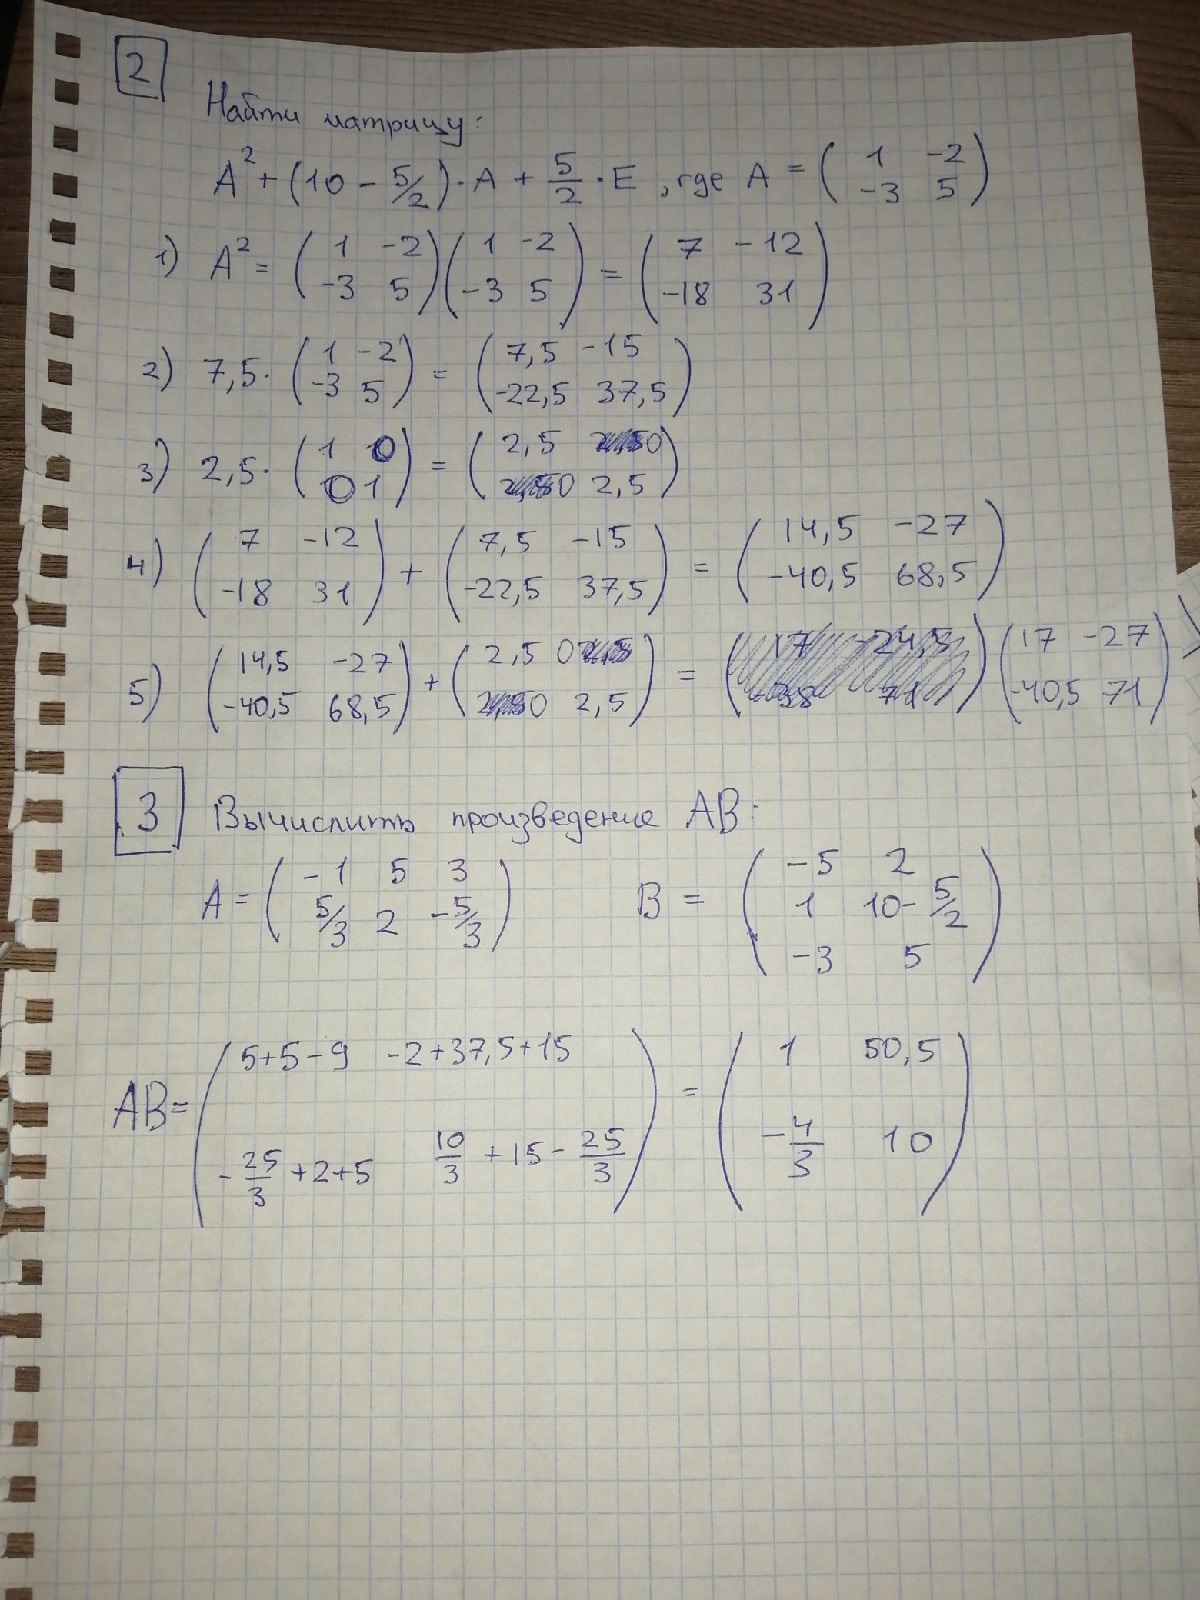 2
Найти матрицу:
A² + (10 - 5/2) · A + 5/2 · E, где A = ( 1 -2 ; -3 5 )
1) A² = ( 1 -2 ; -3 5 ) ( 1 -2 ; -3 5 ) = ( 7 -12 ; -18 31 )
2) 7,5 · ( 1 -2 ; -3 5 ) = ( 7,5 -15 ; -22,5 37,5 )
3) 2,5 · ( 1 0 ; 0 1 ) = ( 2,5 0 ; 0 2,5 )
4) ( 7 -12 ; -18 31 ) + ( 7,5 -15 ; -22,5 37,5 ) = ( 14,5 -27 ; -40,5 68,5 )
5) ( 14,5 -27 ; -40,5 68,5 ) + ( 2,5 0 ; 0 2,5 ) = ( 17 -27 ; -40,5 71 )
3 Вычислить произведение AB:
A = ( -1 5 3 ; 5/3 2 -5/3 ) B = ( -5 2 ; 1 10-5/2 ; -3 5 )
AB = ( 5+5-9 -2+37,5+15 ; -25/3+2+5 10/3+15-25/3 ) = ( 1 50,5 ; -4/3 10 )